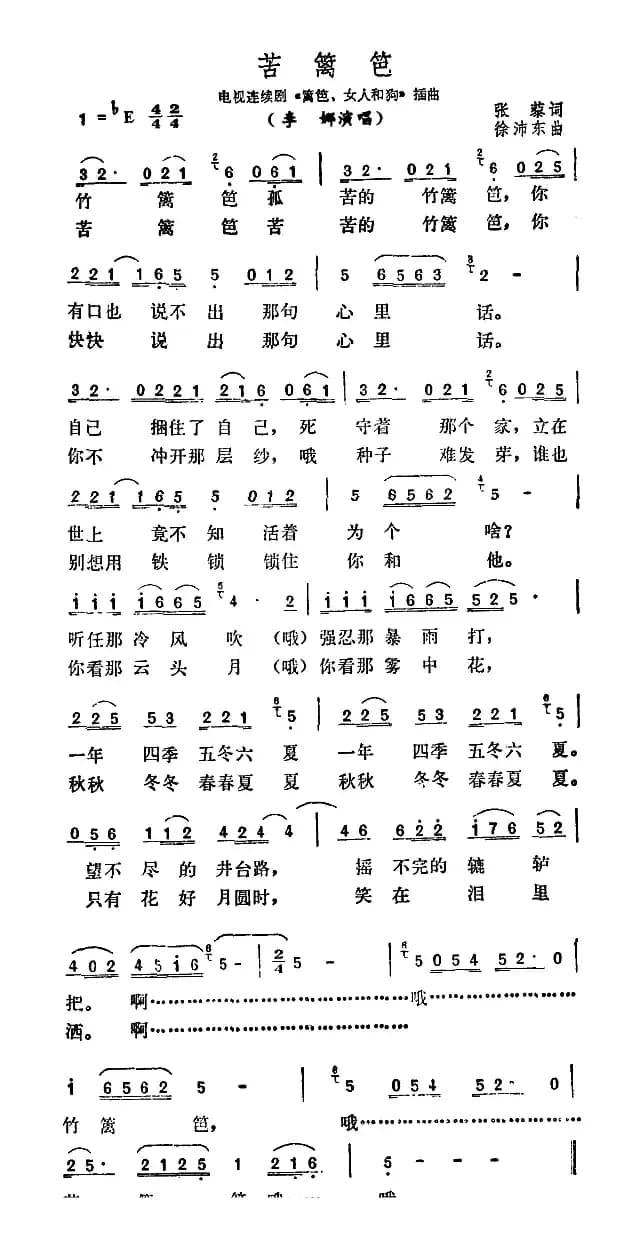 苦篱笆
电视连续剧《篱笆、女人和狗》插曲
1=♭E 4/4 2/4
(李娜演唱)
张藜词
徐沛东曲
32· 021 2 6 061 | 32· 021 2 6 025 |
竹 篱 笆孤 苦的 竹篱 笆，你
苦 篱 笆苦 苦的 竹篱 笆，你
221 165 5 012 | 5 6563 3 2 - |
有口也 说不 出 那句 心里 话。
快快 说 出 那句 心里 话。
32· 0221 216 061 | 32· 021 2 6 025 |
自己 捆住了 自 己，死 守着 那个 家，立在
你不 冲开那 层 纱，哦 种子 难发 芽，谁也
221 165 5 012 | 5 6562 4 5 - |
世上 竟不 知 活着 为个 啥？
别想用 铁 锁 锁住 你和 他。
i i i i665 6 4 · 2 | i i i i665 525 · |
听任那 冷 风 吹 （哦）强忍那 暴 雨 打，
你看那 云 头 月 （哦）你看那 雾 中 花，
225 53 221 6 5 | 225 53 221 6 5 |
一年 四季 五冬六 夏 一年 四季 五冬六 夏。
秋秋 冬冬 春春夏 夏 秋秋 冬冬 春春夏 夏。
056 112 424 4 | 46 622 i76 52 |
望不 尽的 井台路， 摇 不完的 辘 轳
只有 花好 月圆时， 笑 在 泪 里
402 45i6 6 5 - | 2/4 5 - | 6 5 054 52· 0 |
把。 啊………………………哦…………
洒。 啊………………………
i 6562 5 - | 6 5 054 52· 0 |
竹 篱 笆， 哦………………
25· 2125 1 216 | 5 - ‖